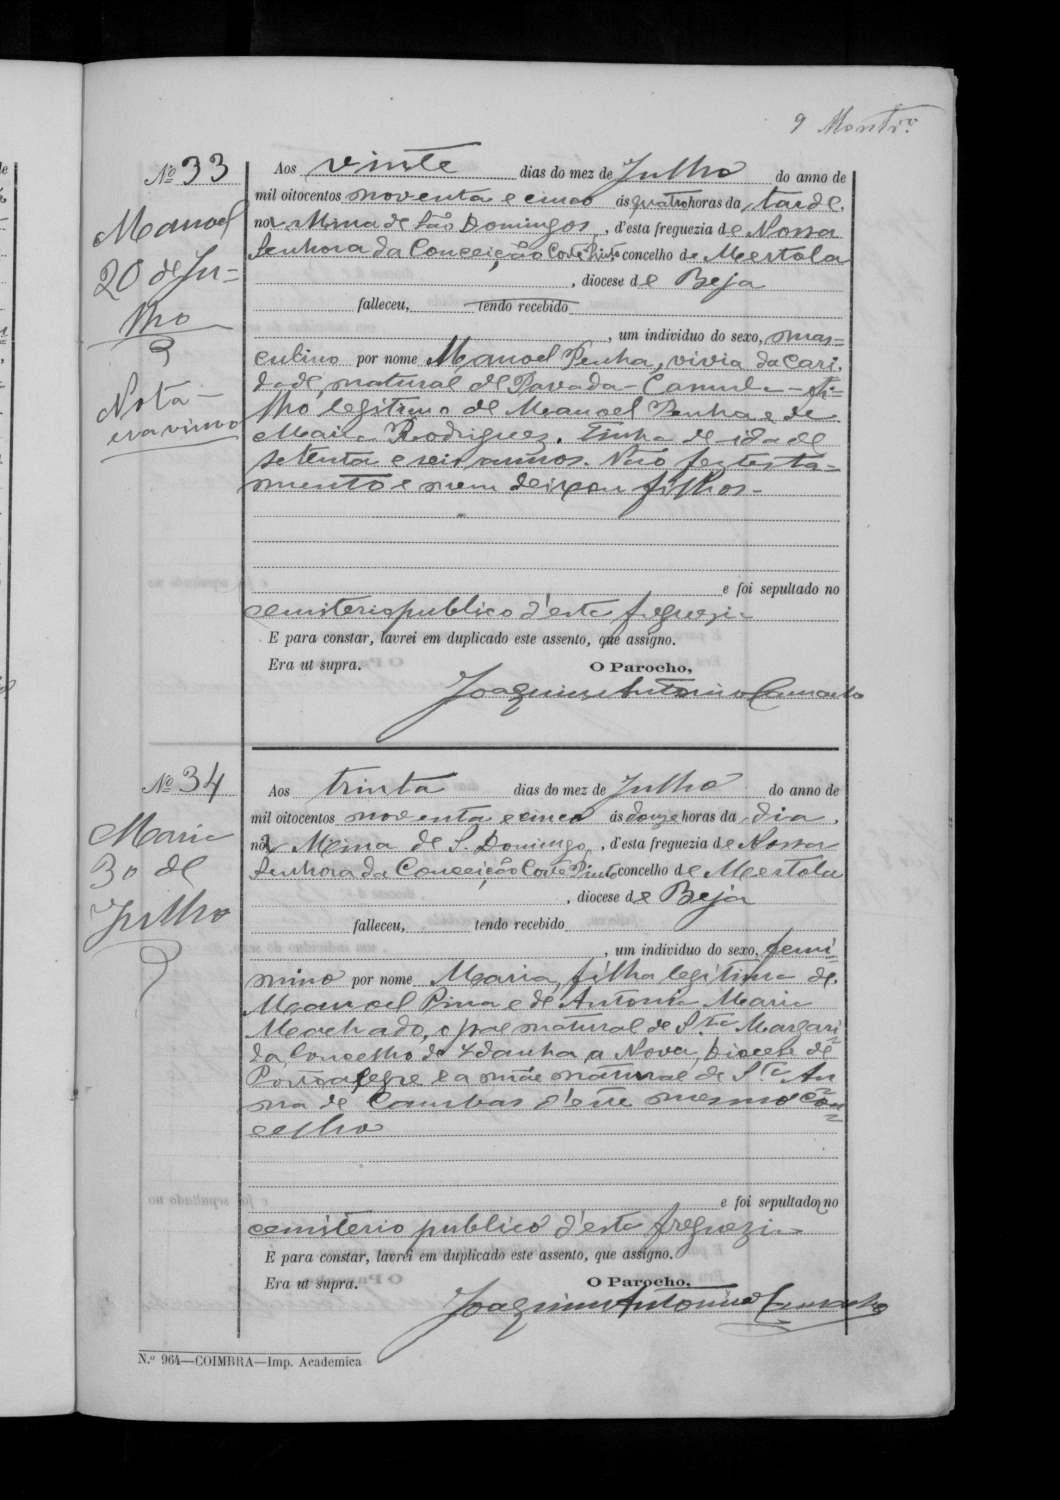 9 Montr.º
Nº 33
Manoel
20 de Ju=
lho
Nota —
era viuvo
Aos vinte dias do mez de Julho do anno de
mil oitocentos noventa e cinco ás quatro horas da tarde,
na Mina de São Domingos, d'esta freguezia de Nossa
Senhora da Conceição Corte Pinto concelho de Mertola
, diocese de Beja
falleceu, tendo recebido
, um individuo do sexo, mas=
culino por nome Manoel Penha, vivia da cari
dade, natural de - fi=
lho legitimo de Manoel Penha e de
Maria Rodriguez. Tinha de idade
setenta e seis annos. Não fez testa=
mento e nem deixou filhos -
e foi sepultado no
cemiterio publico d'esta freguezia
E para constar, lavrei em duplicado este assento, que assigno.
Era ut supra. O Parocho,
Joaquim Antonio Camacho
Nº 34
Maria
30 de
Julho
Aos trinta dias do mez de Julho do anno de
mil oitocentos noventa e cinco ás doze horas da dia,
na Mina de S. Domingos, d'esta freguezia de Nossa
Senhora da Conceição Corte Pinto concelho de Mertola
, diocese de Beja
falleceu, tendo recebido
, um individuo do sexo, femi=
nino por nome Maria, filha legitima de
Manoel Pina e de Antonia Maria
Machado, o pae natural de S.ta Margari
da, Concelho de Idanha a Nova, Diocese de
Portalegre e a mãe natural de S.ta An
na de Cambas d'este mesmo con
celho
e foi sepultada no
cemiterio publico d'esta freguezia
E para constar, lavrei em duplicado este assento, que assigno.
Era ut supra. O Parocho,
Joaquim Antonio Camacho
N.º 964—COIMBRA—Imp. Academica